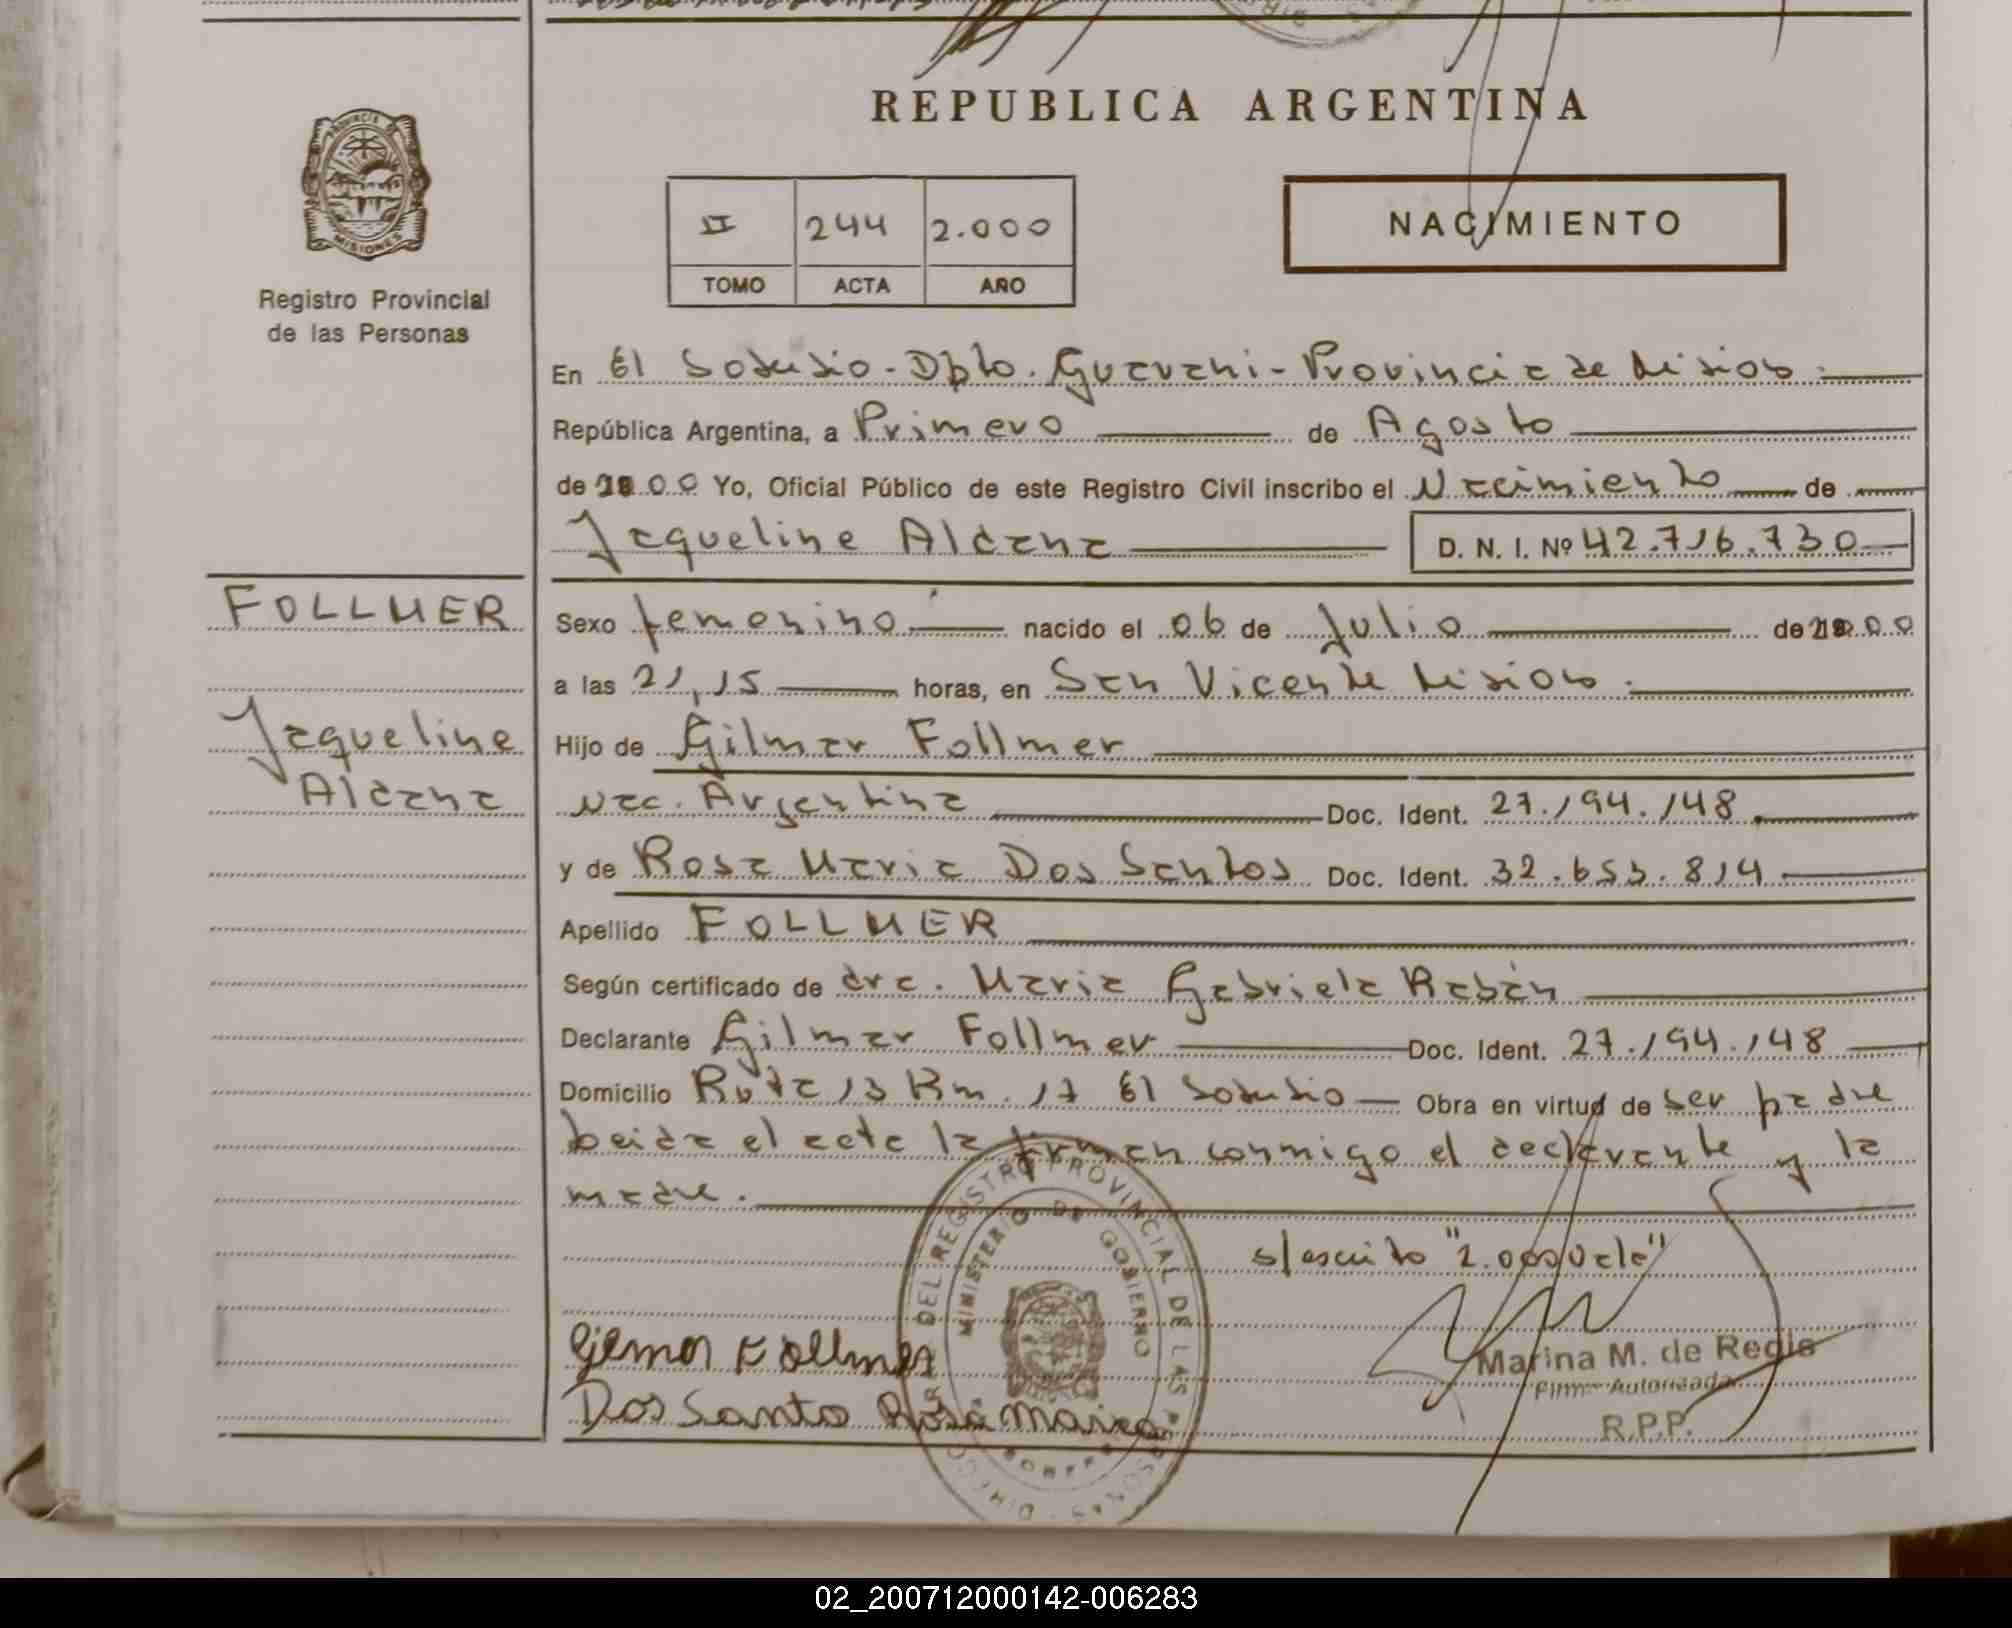 REPUBLICA ARGENTINA
PROVINCIA DE
MISIONES
Registro Provincial
de las Personas
II 244 2.000
TOMO ACTA AÑO
NACIMIENTO
En El Soberbio - Dpto. Guarani - Provincia de Misiones.
República Argentina, a Primero de Agosto
de 2000 Yo, Oficial Público de este Registro Civil inscribo el Nacimiento de
Jaqueline Aldana D. N. I. Nº 42.716.730
FOLLMER
Jaqueline
Aldana
Sexo femenino nacido el 06 de Julio de 2000
a las 21,15 horas, en San Vicente Misiones.
Hijo de Gilmar Follmer
Nac. Argentina Doc. Ident. 27.194.148
y de Rosa Maria Dos Santos Doc. Ident. 32.653.814
Apellido FOLLMER
Según certificado de dra. Maria Gabriela Rabán
Declarante Gilmar Follmer Doc. Ident. 27.194.148
Domicilio Ruta 13 Km. 17 El Soberbio Obra en virtud de ser padre
Leida el acta la firman conmigo el declarante y la
madre.
s/escrito "2.000 Vale"
Gilmar Follmer
Dos Santo Rosa Maria
DEL REGISTRO PROVINCIAL DE LAS PERSONAS
MINISTERIO DE GOBIERNO
Marina M. de Regis
Firma Autorizada
R.P.P.
02_200712000142-006283